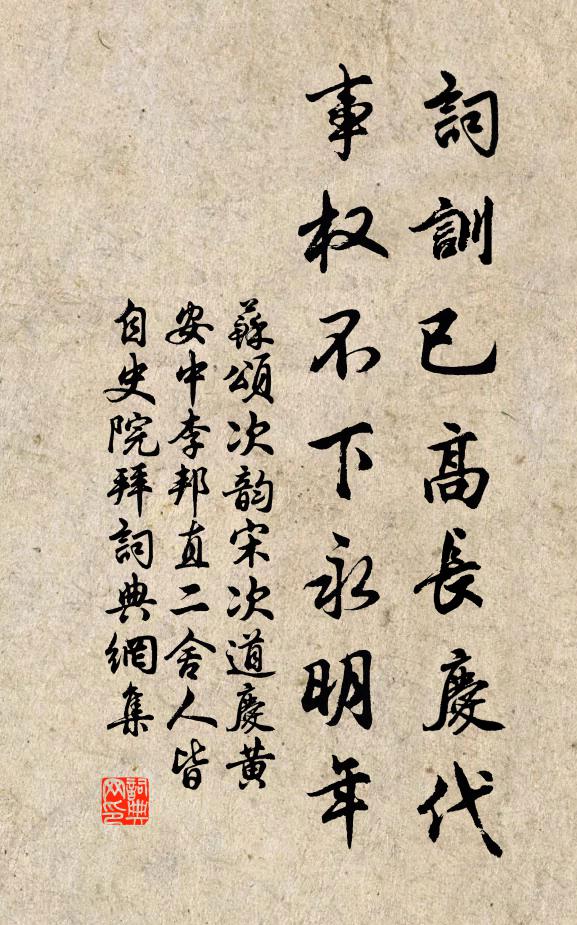 詞訓已高長慶代
事权不下永明年
蘇頌次韵宋次道慶黄
安中李邦直二舍人皆
自史院拜詞典網集
詞典
网印